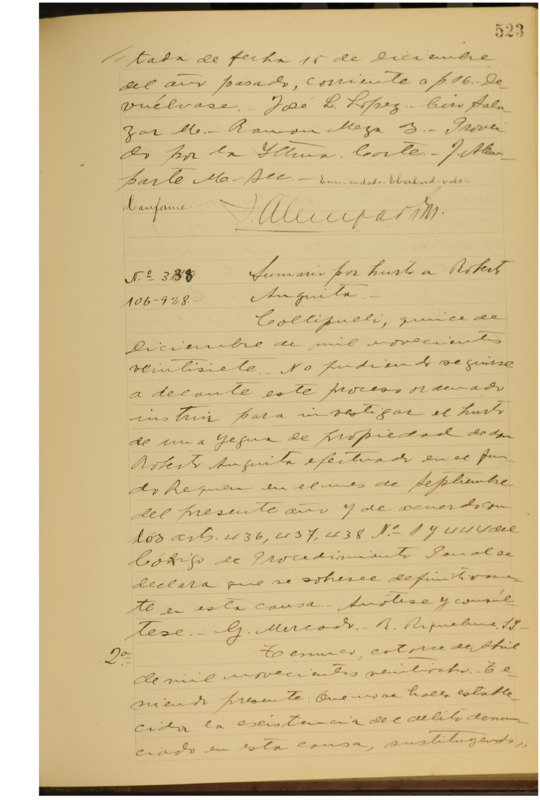 523
tada de fecha 15 de Diciembre
del año pasado, corriente a p 16.- De-
vuélvase.- José L. Lopez.- Ciro Sala
zar M.- Ramon Meza B.- Provei
do por la Iltma. Corte.- J. Alem-
parte M. Sec.- Enmendado: Eberhard-vale-
Conforme.-
Nº 338 Sumario por hurto a Roberto
106-928- Anguita.-
Collipulli, quince de
Diciembre de mil novecientos
veintisiete.- No pudiendo seguirse
adelante este proceso ordenado
instruir para investigar el hurto
de una yegua de propiedad de don
Roberto Anguita efectuado en el fun-
do Requen en el mes de Septiembre
del presente año y de acuerdo con
los arts. 436, 437, 438 Nº 1 y 444 del
Código de Procedimiento Penal se
declara que se sobresee definitivamen
te en esta causa.- Anótese y consúl-
tese.- G. Mercado.- R. Riquelme, S.-
2ª Temuco, catorce de Abril
de mil novecientos veintiocho.- Te-
niendo presente: Que no se halla estable-
cida la existencia del delito denun
ciado en esta causa, sustituyendo,,